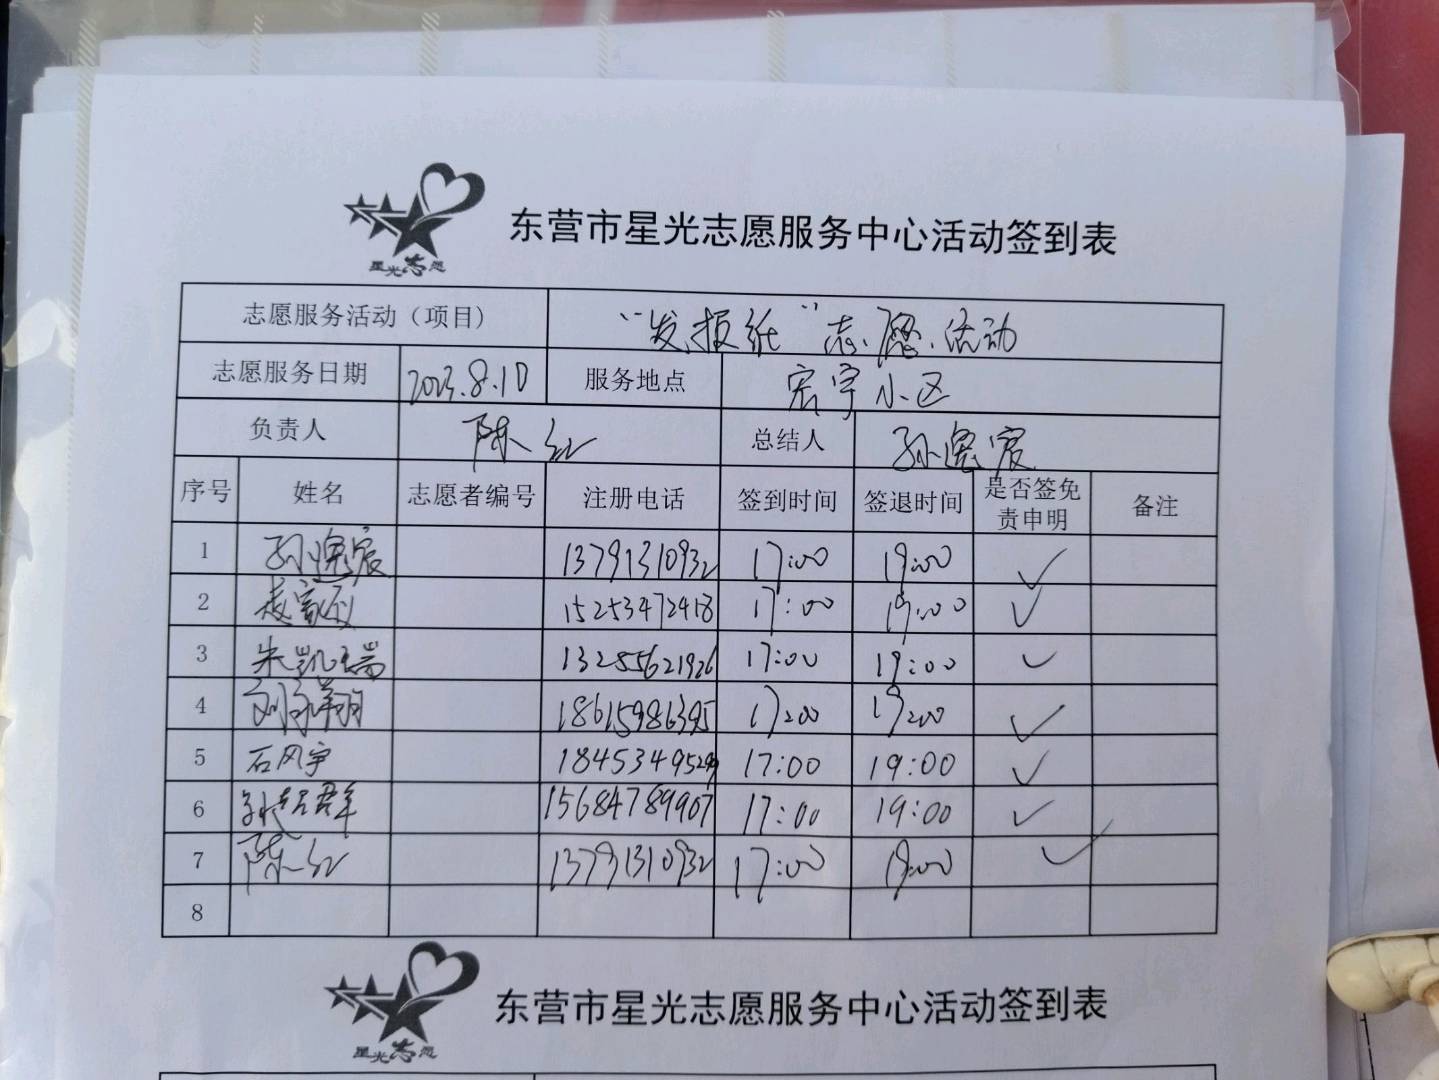 星光志愿
东营市星光志愿服务中心活动签到表
志愿服务活动（项目） “发报纸”志愿活动
志愿服务日期 2023.8.10 服务地点 宏宇小区
负责人 陈红 总结人 孙逸宸
序号 姓名 志愿者编号 注册电话 签到时间 签退时间 是否签免责申明 备注
1 孙逸宸 13791310932 17:00 19:00 ✓
2 15253472418 17:00 19:00 ✓
3 朱凯瑞 13255621926 17:00 19:00 ✓
4 18615986395 17:00 19:00 ✓
5 石风宇 18453495299 17:00 19:00 ✓
6 15684789907 17:00 19:00 ✓
7 陈红 13791310932 17:00 19:00 ✓
8
星光志愿
东营市星光志愿服务中心活动签到表